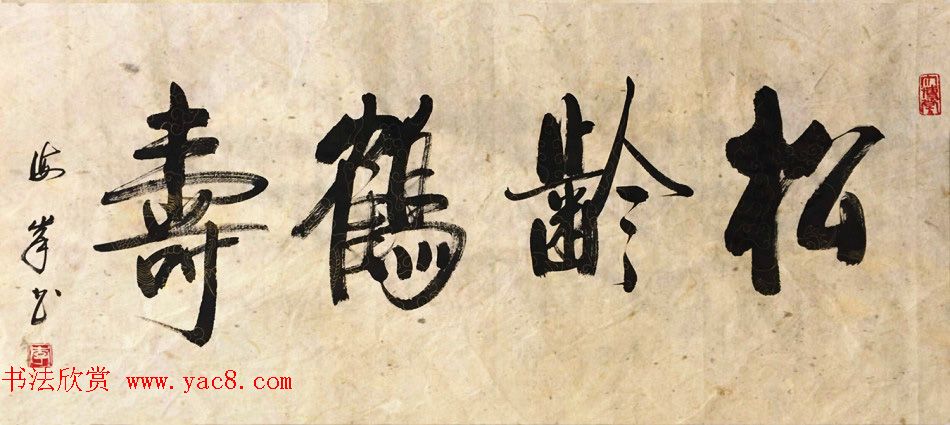 松齡鶴壽
海峯书
李
书法欣赏 www.yac8.com